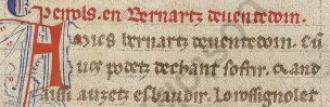 Peirols. en Bernartz deuentedorn.
Amics bernartz deuentedorn. cū
uos podetz dechant sofrir. cant
aissi auzetz esbaudir. Lorossignolet